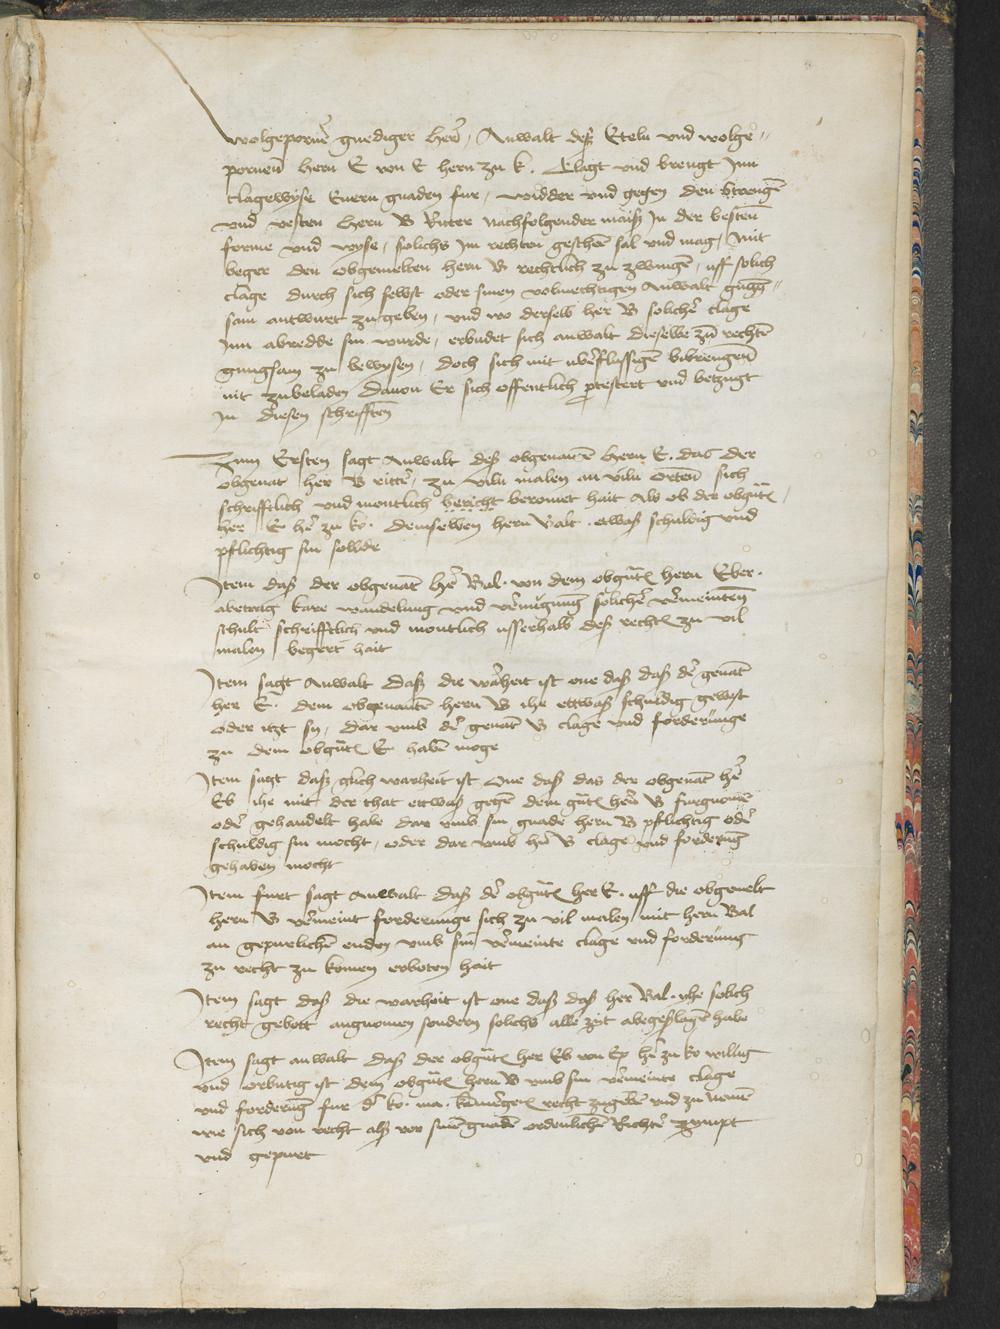 Wolgeporner gnediger Her, Anwalt deß Eteln und wolge„
pornen Hern E von E hern zu k. Clagt und brengt Inn
clagewyse Euern gnaden fur, widder und gegen den Strengen
und vesten Hern B Ritter nachfolgender maiß In der besten
forme und wyse, solichs Im rechten geschen sal und mag, Mit
beger den obgemelten hern B rechtlich zu zwingen, uff solich
clage durch sich selbst oder sinen volmechtigen Anwalt gnug„
sam antwurt zugeben, und wo derselb her B solicher clage
Inn abredde sin wurde, erbudet sich anwalt dieselbe zu rechten
gnugsam zu bewysen, doch sich mit uberflussigen bibrengen
nit zubeladen Dauon Er sich offentlich protestert und betzugt
In diesen schrifften
Zum Ersten sagt Anwalt deß obgenanten Hern E. das der
obgenant her B ritter, zu viln malen an viln orten sich
schrifftlich und montlich bericht beromet hait Als ob der obgnt
her E her zu ko. demselben hern Balt. etwaß schuldig und
pflichtig sin solde
Item daß der obgenant her Bal. von dem obgnt hern Eber.
abetrag kare wandelung und vernugung solicher vermeinten
schult schrifftlich und montlich usserhalb deß rechten zu vil
malen begert hait
Item sagt Anwalt daß die warheit ist one daß daß der genant
her E. dem obgenanten hern B ihe ettwaß schuldig gewest
oder itzt sy, dar umb der genant B clage und forderunge
zu dem obgnt E haben moge
Item sagt daß glich warheit ist One daß das der obgenant her
Eb ihe mit der that ettwaß gegen dem gnt hern B furgnomen
oder gehandelt habe dar umb sin gnade hern B pflichtig oder
schuldig sin mocht, oder dar umb her B clage und forderung
gehaben mocht
Item furt sagt Anwalt daß der obgnt her E. uff die obgemelt
hern B vermeint forderunge sich zu vil malen mit hern Bal
an gepurlichen enden umb sin vermeinte clage und forderung
zu recht zu komen erboten hait
Item sagt daß die warheit ist one daß daß her Bal. ihe solich
recht gebott angnomen sondern solichs alle zyt abegeslagen habe
Item sagt anwalt daß der obgnt her Eb von Ep her zu ko willig
und orbutig ist dem obgnt hern B umb sin vermeinte clage
und forderung fur der ko. ma. kamergericht recht zugeben und zu nemen
wie sich von recht alß vor sinen gnaden ordenlichen Richter zympt
und gepurt